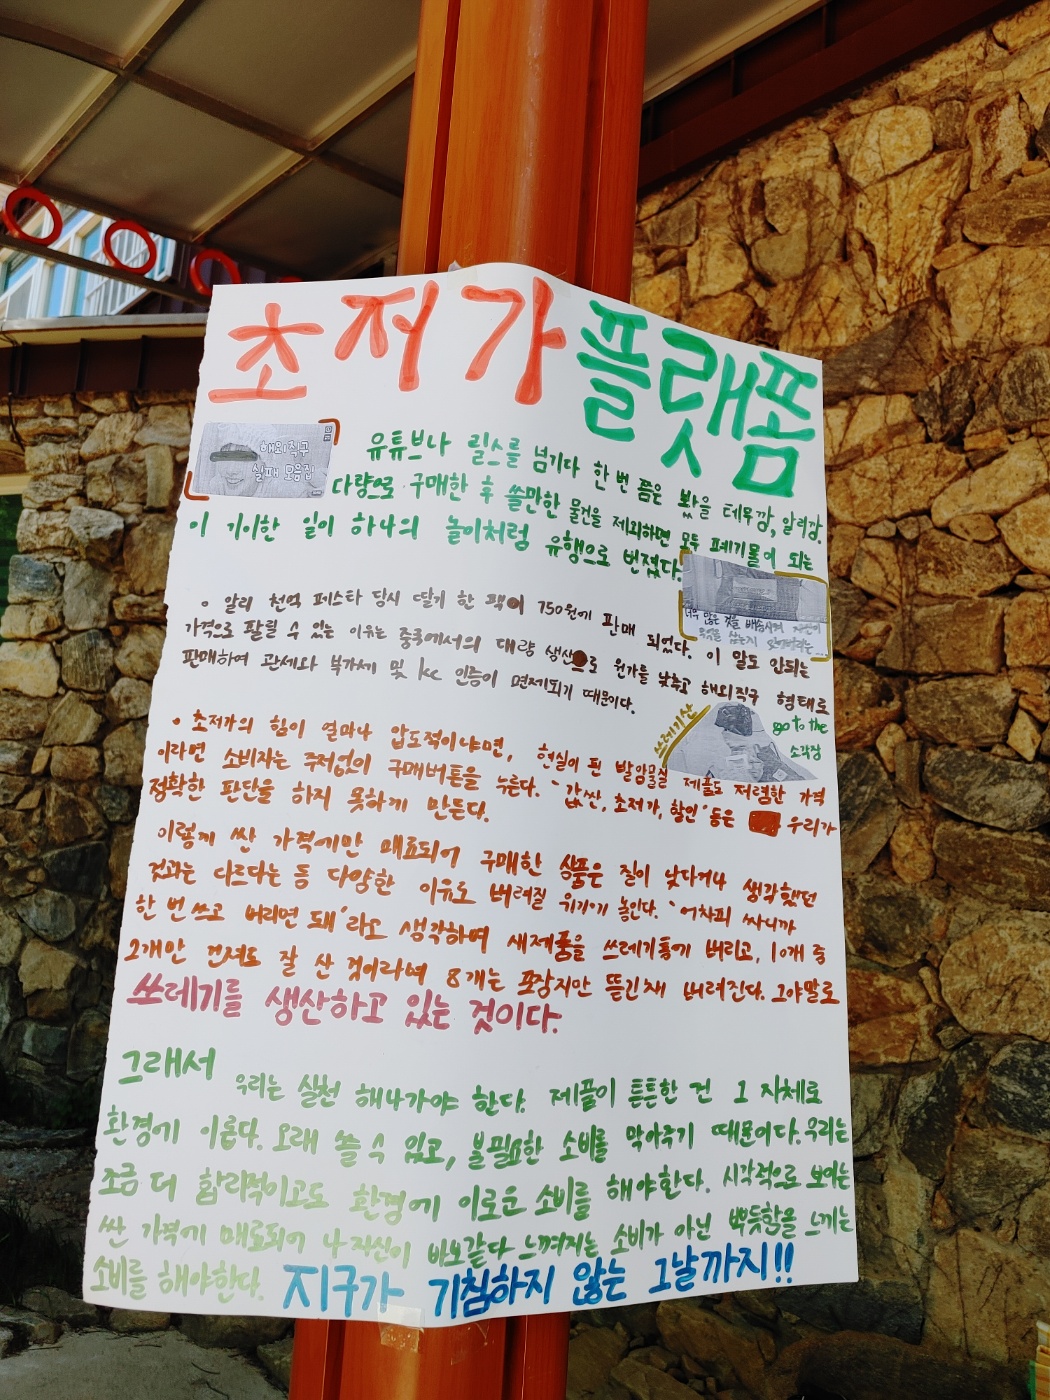 초저가 플랫폼
해외직구
실패 모음집
유튜브나 릴스를 넘기다 한 번 쯤은 봤을 테무깡, 알리깡.
다량으로 구매한 후 쓸만한 물건을 제외하면 모두 폐기물이 되는
이 기이한 일이 하나의 놀이처럼 유행으로 번졌다.
너무 많은 것을 배송시켜
· 알리 천억 페스타 당시 딸기 한 팩이 750원에 판매 되었다. 이 말도 안되는
가격으로 팔릴 수 있는 이유는 중국에서의 대량 생산으로 원가를 낮추고 해외직구 형태로
판매하여 관세와 부가세 및 kc 인증이 면제되기 때문이다.
쓰레기산
go to the
소각장
· 초저가의 힘이 얼마나 압도적이냐면, 현실이 된 발암물질 제품도 저렴한 가격
이라면 소비자는 주저없이 구매버튼을 누른다. "값싼, 초저가, 할인" 등은 우리가
정확한 판단을 하지 못하게 만든다.
이렇게 싼 가격에만 매료되어 구매한 상품은 질이 낮다거나 생각했던
것과는 다르다는 등 다양한 이유로 버려질 위기에 놓인다. "어차피 싸니까
한 번 쓰고 버리면 돼"라고 생각하여 새제품을 쓰레기통에 버리고, 10개 중
2개만 건져도 잘 산 것이라며 8개는 포장지만 뜯긴채 버려진다. 그야말로
쓰레기를 생산하고 있는 것이다.
그래서
우리는 실천 해나가야 한다. 제품이 튼튼한 건 그 자체로
환경에 이롭다. 오래 쓸 수 있고, 불필요한 소비를 막아주기 때문이다. 우리는
조금 더 합리적이고도 환경에 이로운 소비를 해야한다. 시각적으로 보이는
싼 가격에 매료되어 나 자신이 바보같다 느껴지는 소비가 아닌 뿌듯함을 느끼는
소비를 해야한다. 지구가 기침하지 않는 그날까지!!